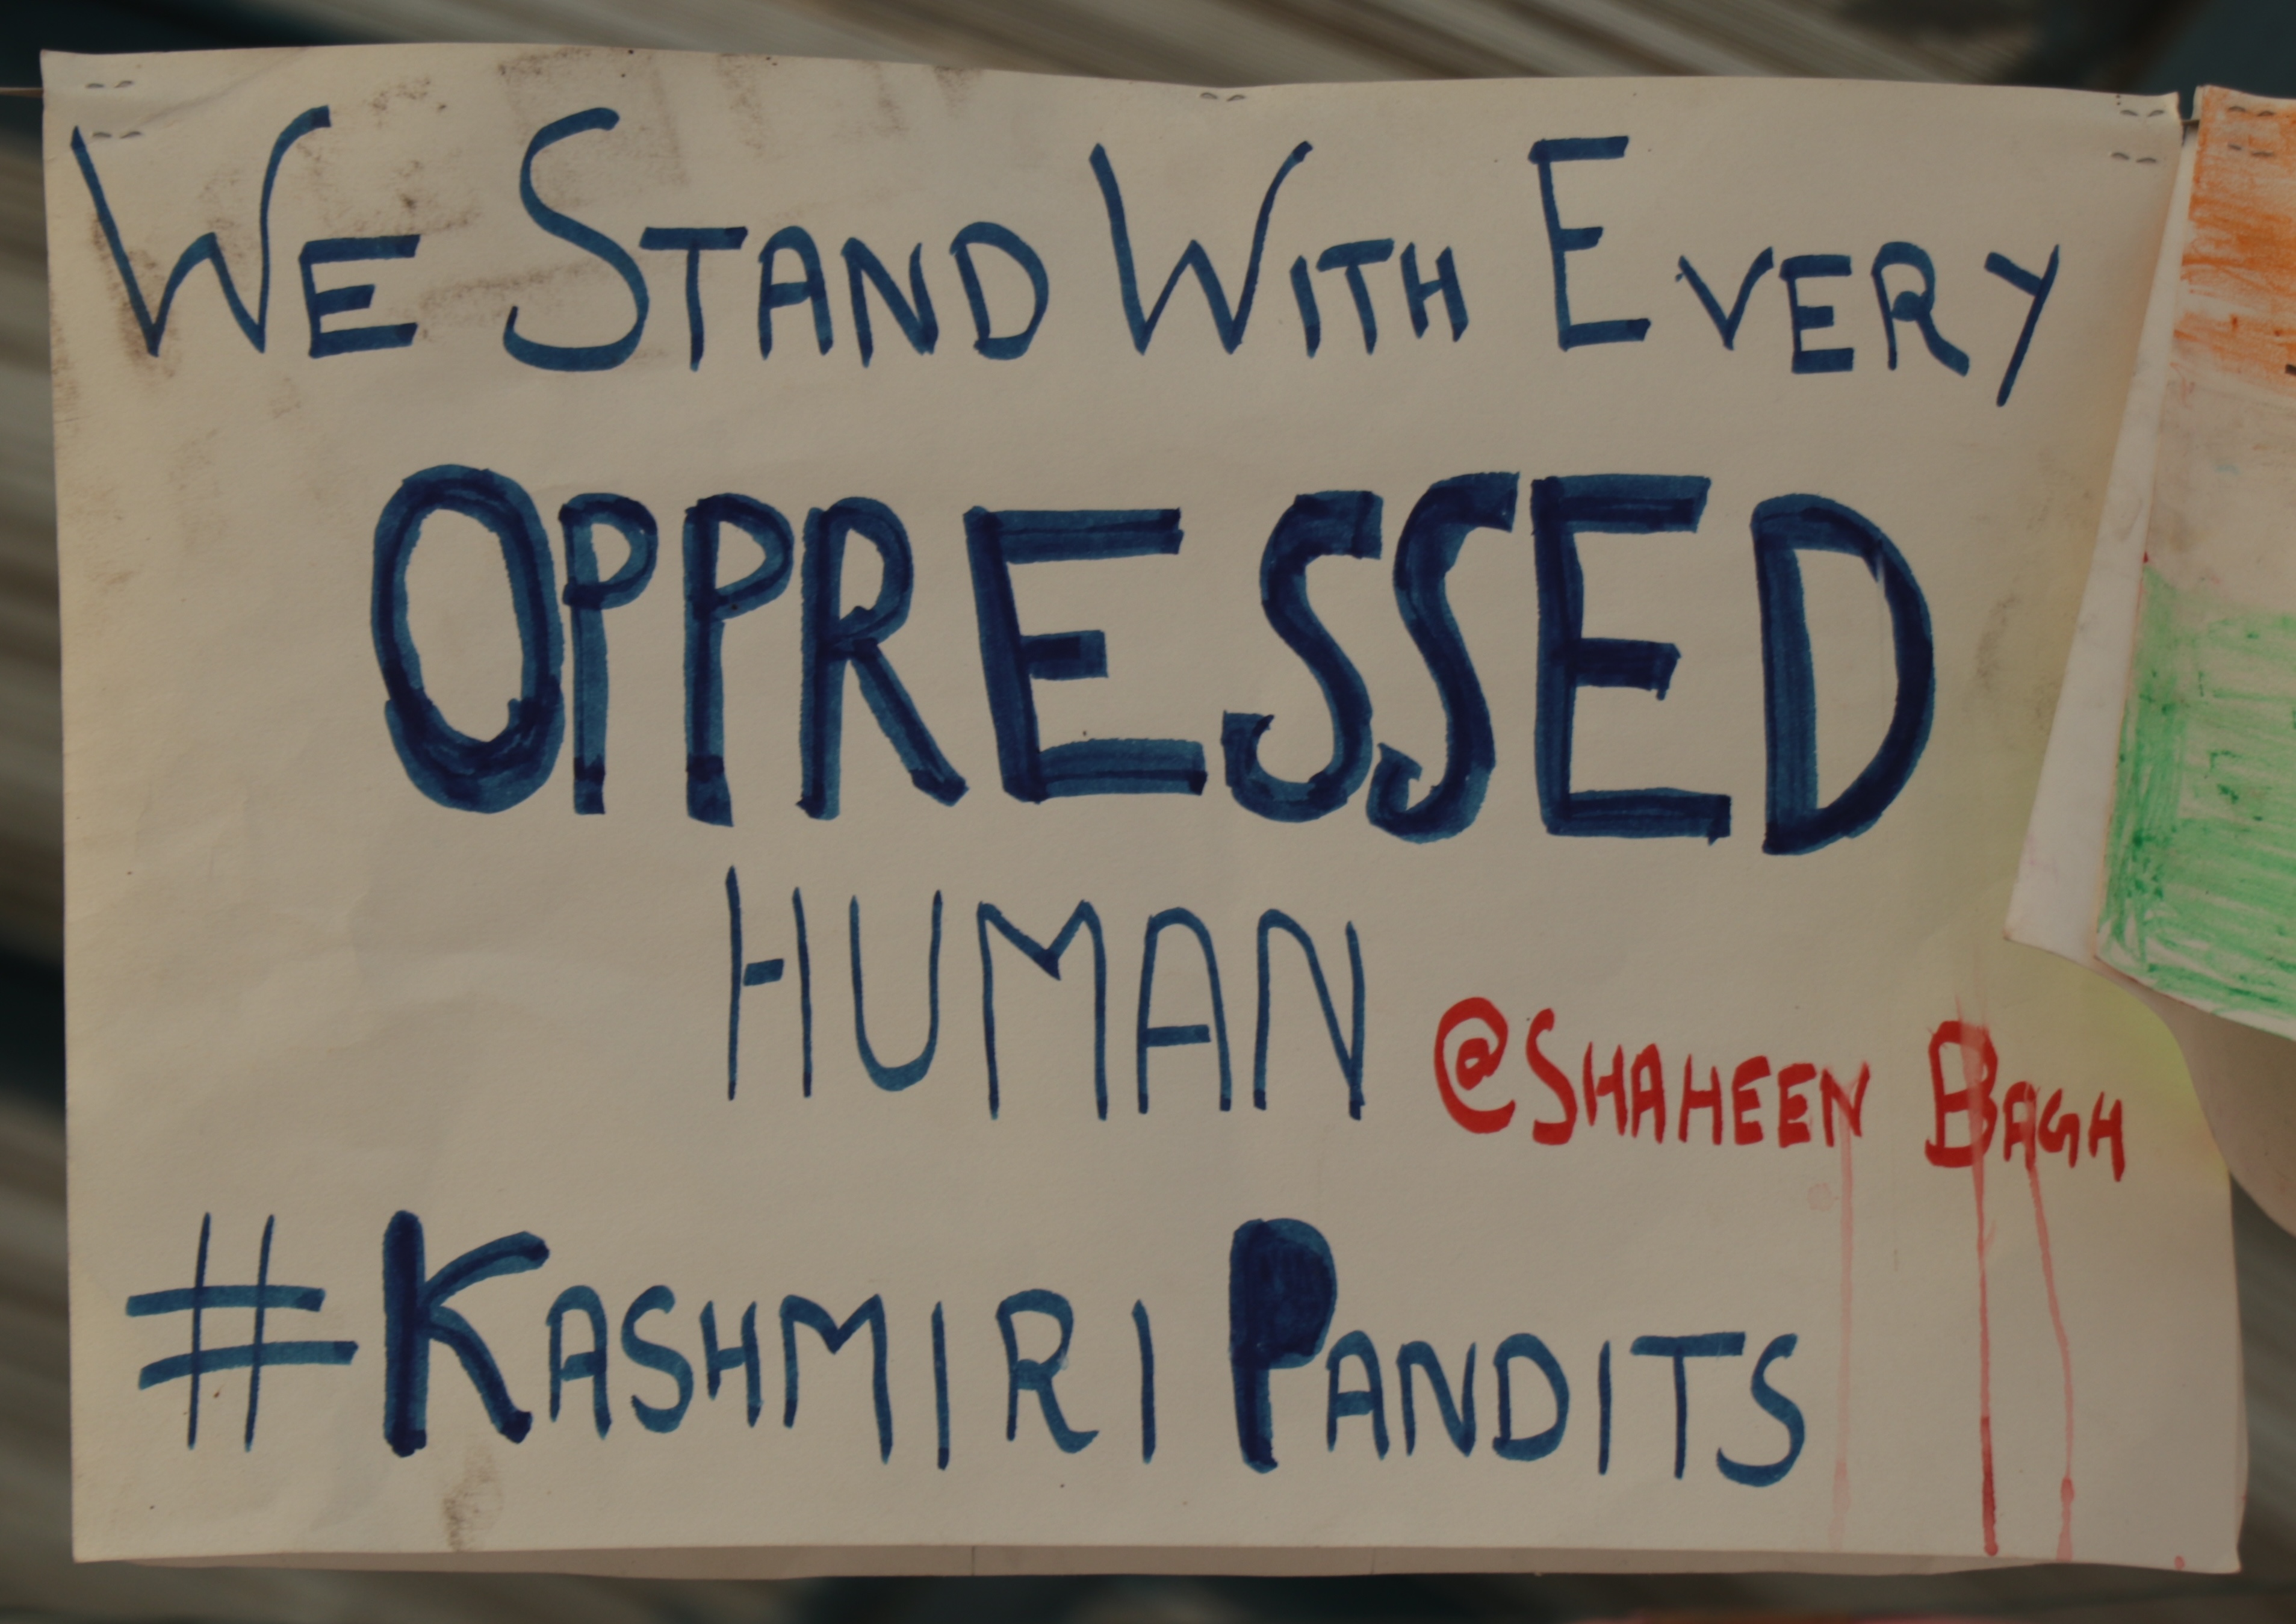 We Stand With Every
OPPRESSED
HUMAN
@Shaheen Bagh
#Kashmiri Pandits